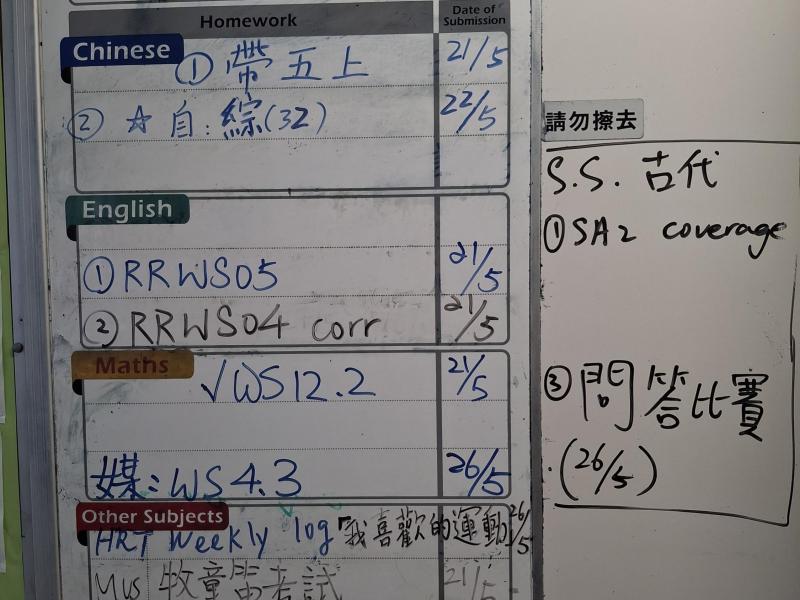 Homework
Date of Submission
Chinese
① 帶五上 21/5
② ☆ 自：綜(32) 22/5
English
① RRWS05 21/5
② RRWS04 corr 21/5
Maths
√WS12.2 21/5
媒：WS4.3 26/5
Other Subjects
HRT Weekly log「我喜歡的運動 26/5
Mus 牧童笛考試 21/5
請勿擦去
S.S. 古代
① SA2 coverage
③ 問答比賽
(26/5)